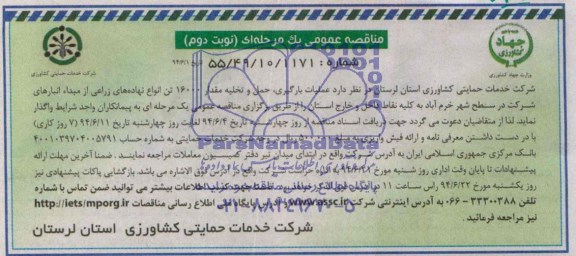 مناقصه عمومی یک مرحله‌ای (نوبت دوم)
شماره: ۵۵/۴۹/۱۰/۱۱۷۱
تاریخ ۹۴/۶/۱
جهاد کشاورزی
وزارت جهاد کشاورزی
شرکت خدمات حمایتی کشاورزی
شرکت خدمات حمایتی کشاورزی استان لرستان در نظر دارد عملیات بارگیری، حمل و تخلیه مقدار ۱۶۰۰۰ تن انواع نهاده‌های زراعی از مبداء انبارهای
شرکت در سطح شهر خرم آباد به کلیه نقاط داخل و خارج استان را از طریق برگزاری مناقصه عمومی یک مرحله ای به پیمانکاران واجد شرایط واگذار
نماید. لذا از متقاضیان دعوت می گردد جهت دریافت اسناد مناقصه از روز چهارشنبه تاریخ ۹۴/۶/۴ لغایت روز چهارشنبه تاریخ ۹۴/۶/۱۱ (۷ روز کاری)
با در دست داشتن معرفی نامه و ارائه فیش واریزی به مبلغ شرکت خدمات حمایتی به شماره حساب ۴۰۰۱۰۳۹۷۰۴۰۰۵۷۹۱
بانک مرکزی جمهوری اسلامی ایران به آدرس شرکت واقع در ابتدای میدان تیر دفتر کمیسیون معاملات مراجعه نمایند. ضمنا آخرین مهلت ارائه
پیشنهادات تا پایان وقت اداری روز شنبه مورخ شرکت واقع در آدرس فوق الاشاره می باشد. بازگشایی پاکات پیشنهادی نیز
روز یکشنبه مورخ ۹۴/۶/۲۲ راس ساعت ۱۱ در اطلاعات بیشتر می توانید ضمن تماس با شماره
تلفن ۳۳۳۰۰۳۸۸-۰۶۶ به آدرس اینترنتی شرکت www.assc.ir و پایگاه اطلاع رسانی مناقصات http://iets/mporg.ir
نیز مراجعه فرمائید.
شرکت خدمات حمایتی کشاورزی استان لرستان
ParsNamadData
۰۲۱-۸۸۳۴۹۶۷۰-۵